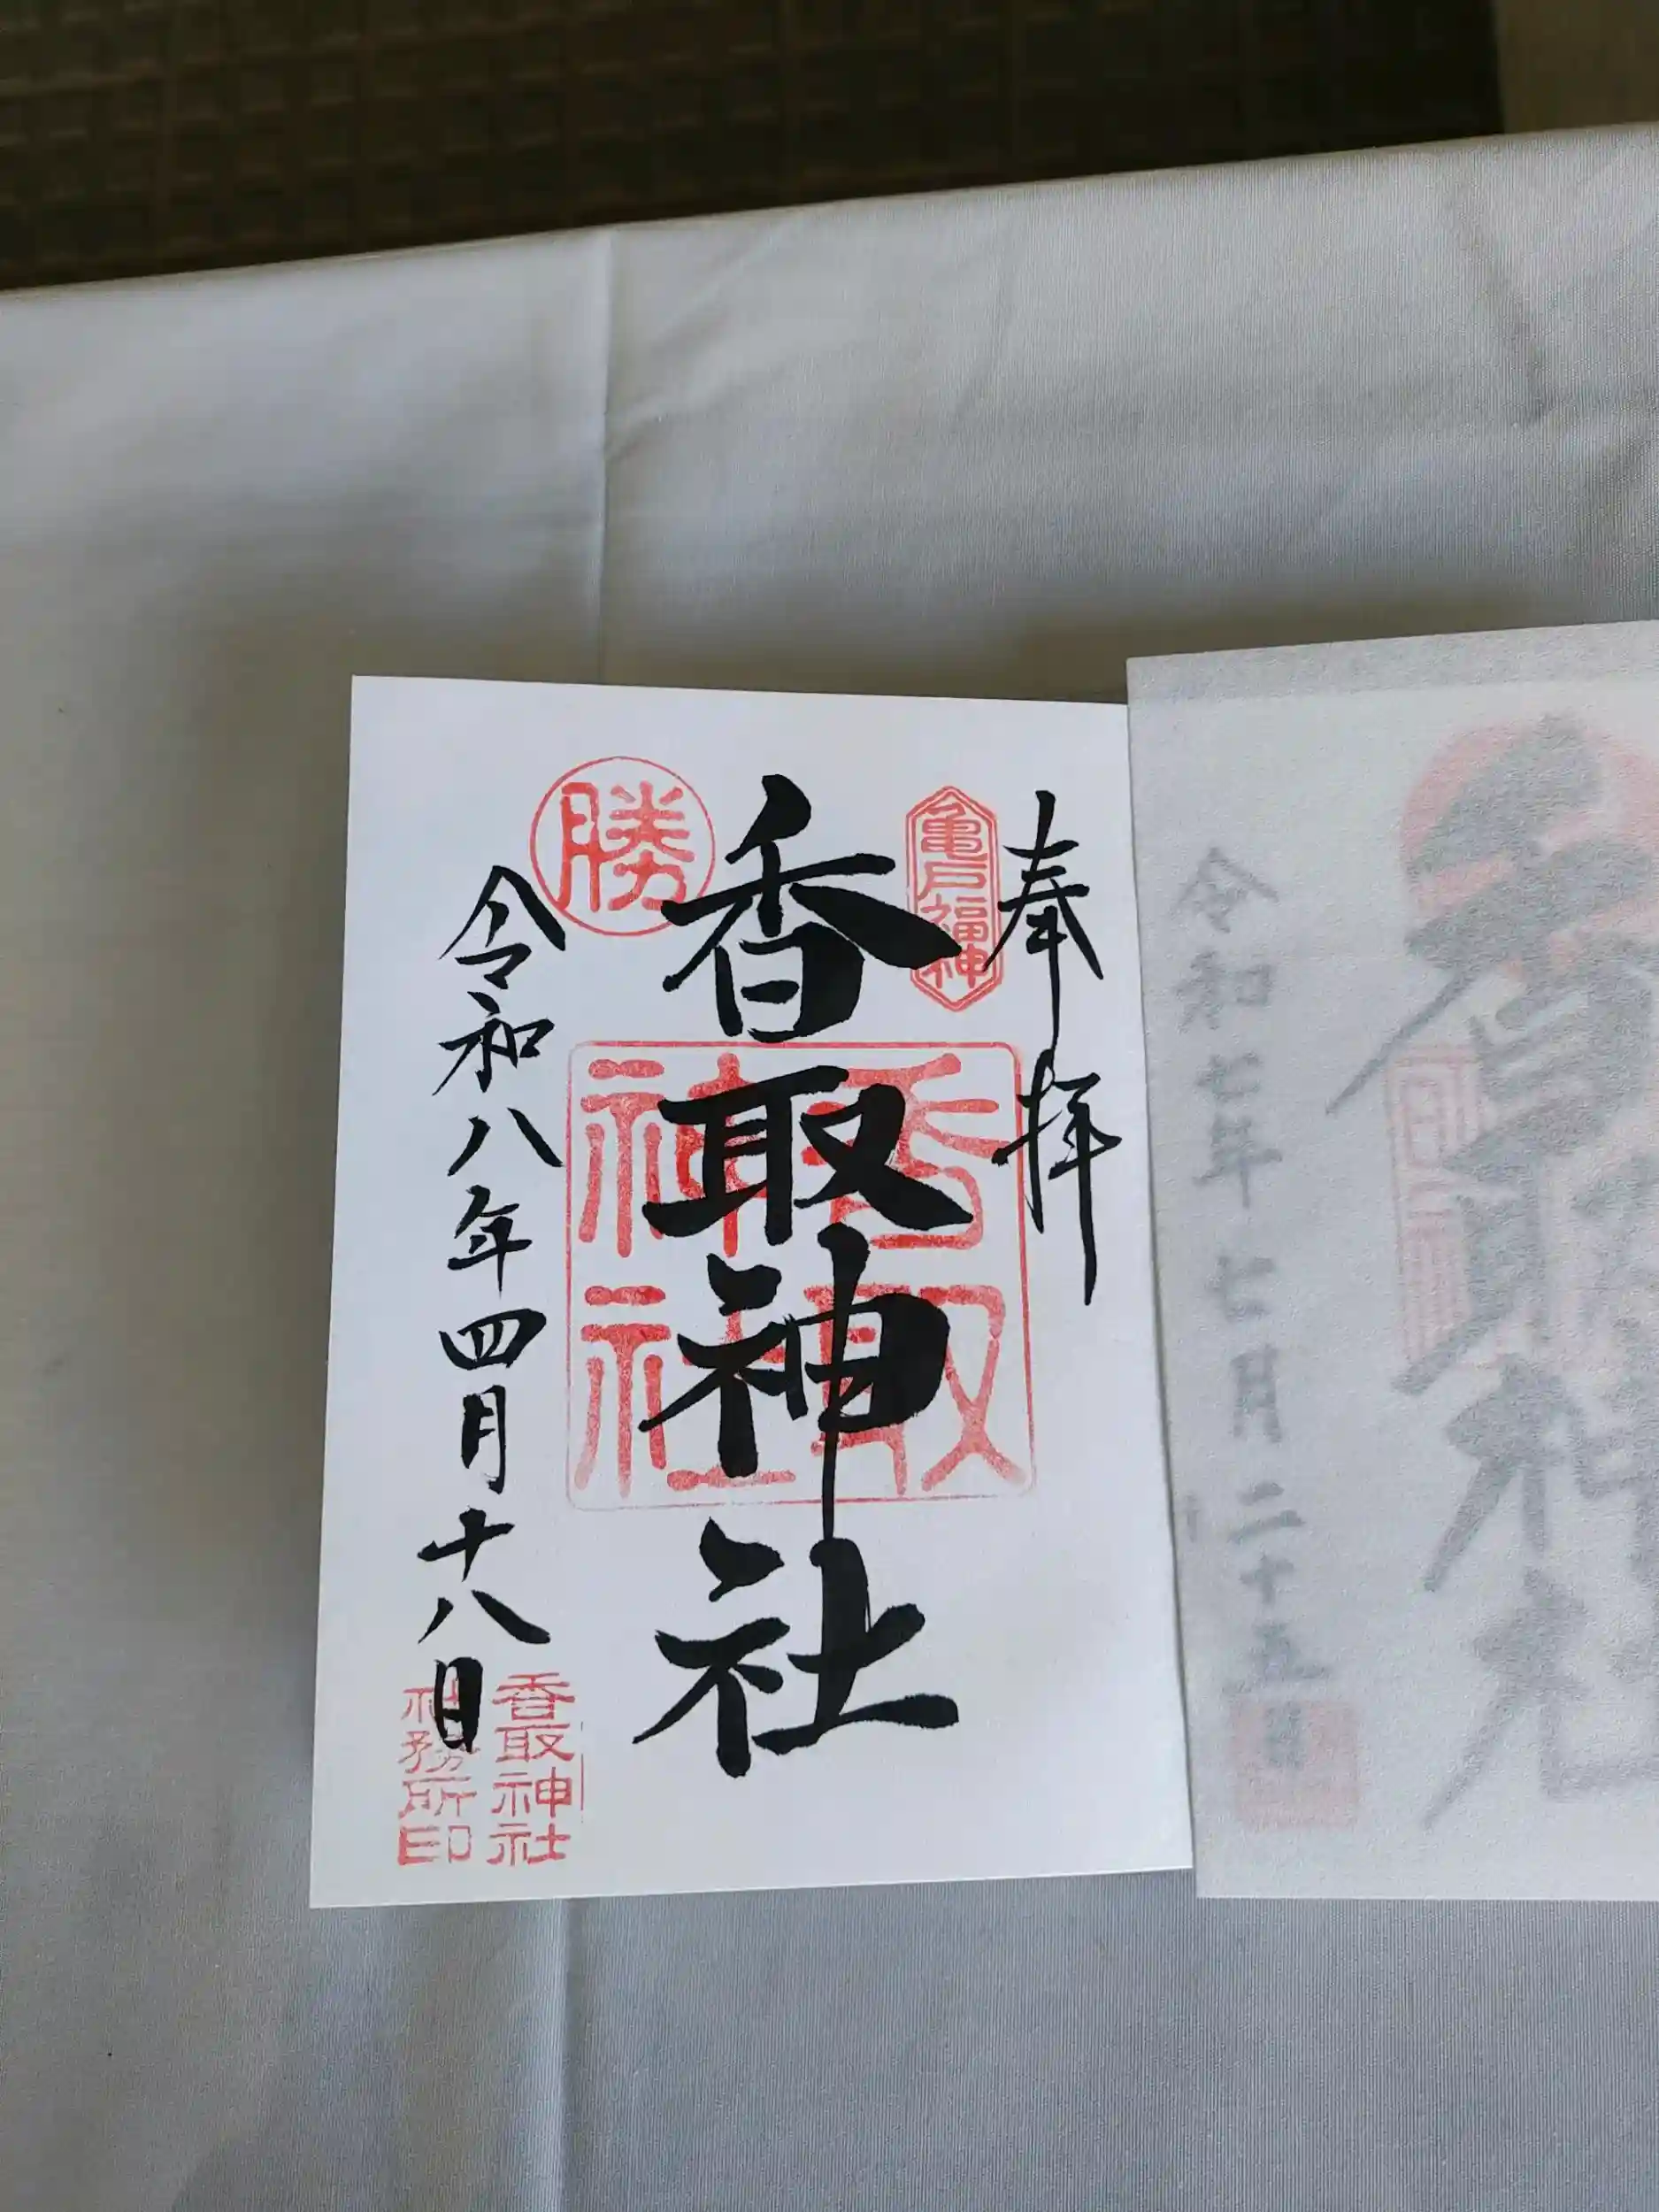 奉拝
亀戸福神
香取神社
香取
神社
勝
令和八年四月十八日
香取神社
社務所印
令和七年七月二十五日